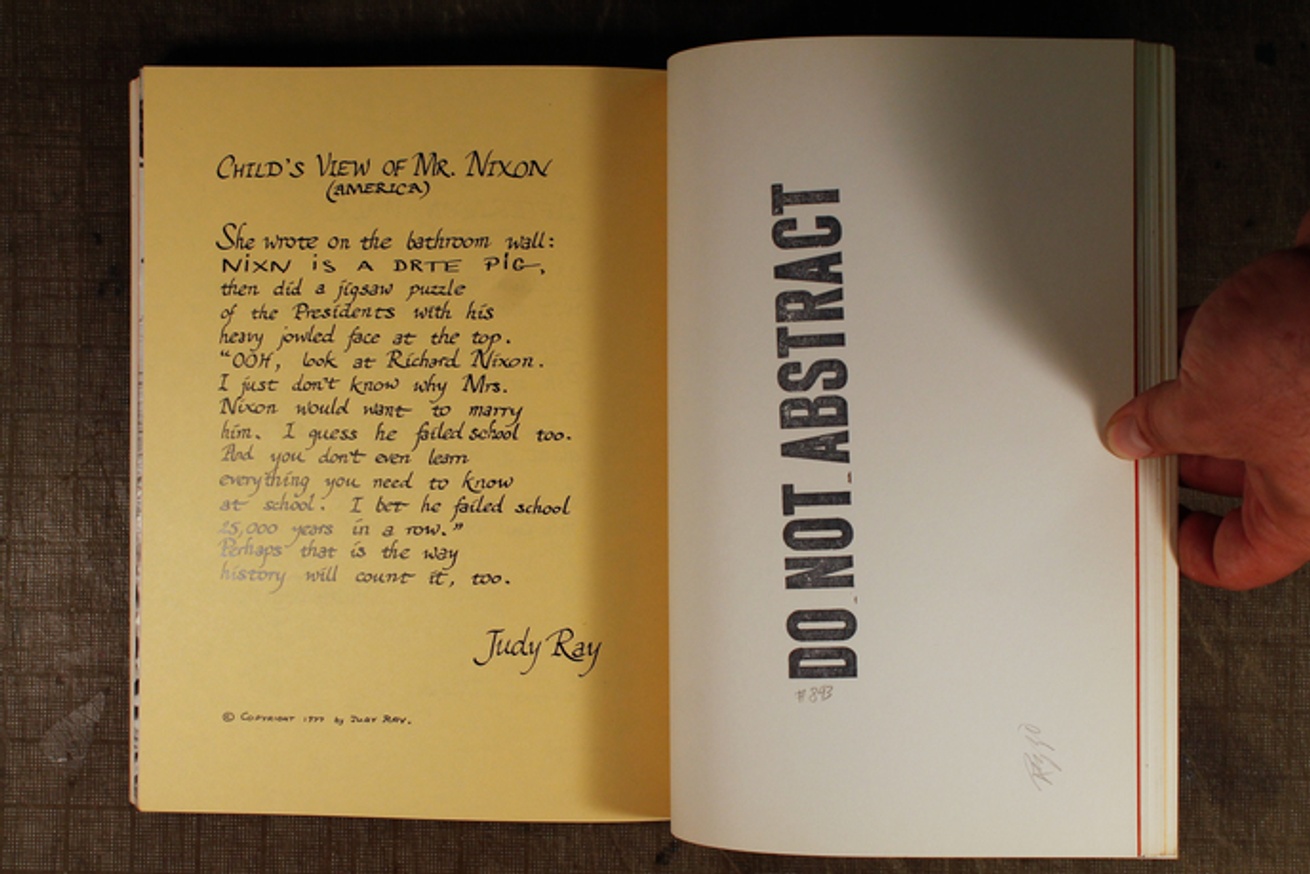 CHILD'S VIEW OF MR. NIXON
(AMERICA)
She wrote on the bathroom wall:
NIXN IS A DRTE PIG,
then did a jigsaw puzzle
of the Presidents with his
heavy jowled face at the top.
"OOH, look at Richard Nixon.
I just don't know why Mrs.
Nixon would want to marry
him. I guess he failed school too.
And you don't even learn
everything you need to know
at school. I bet he failed school
25,000 years in a row."
Perhaps that is the way
history will count it, too.
Judy Ray
© COPYRIGHT 1977 by JUDY RAY.
DO NOT ABSTRACT
#893